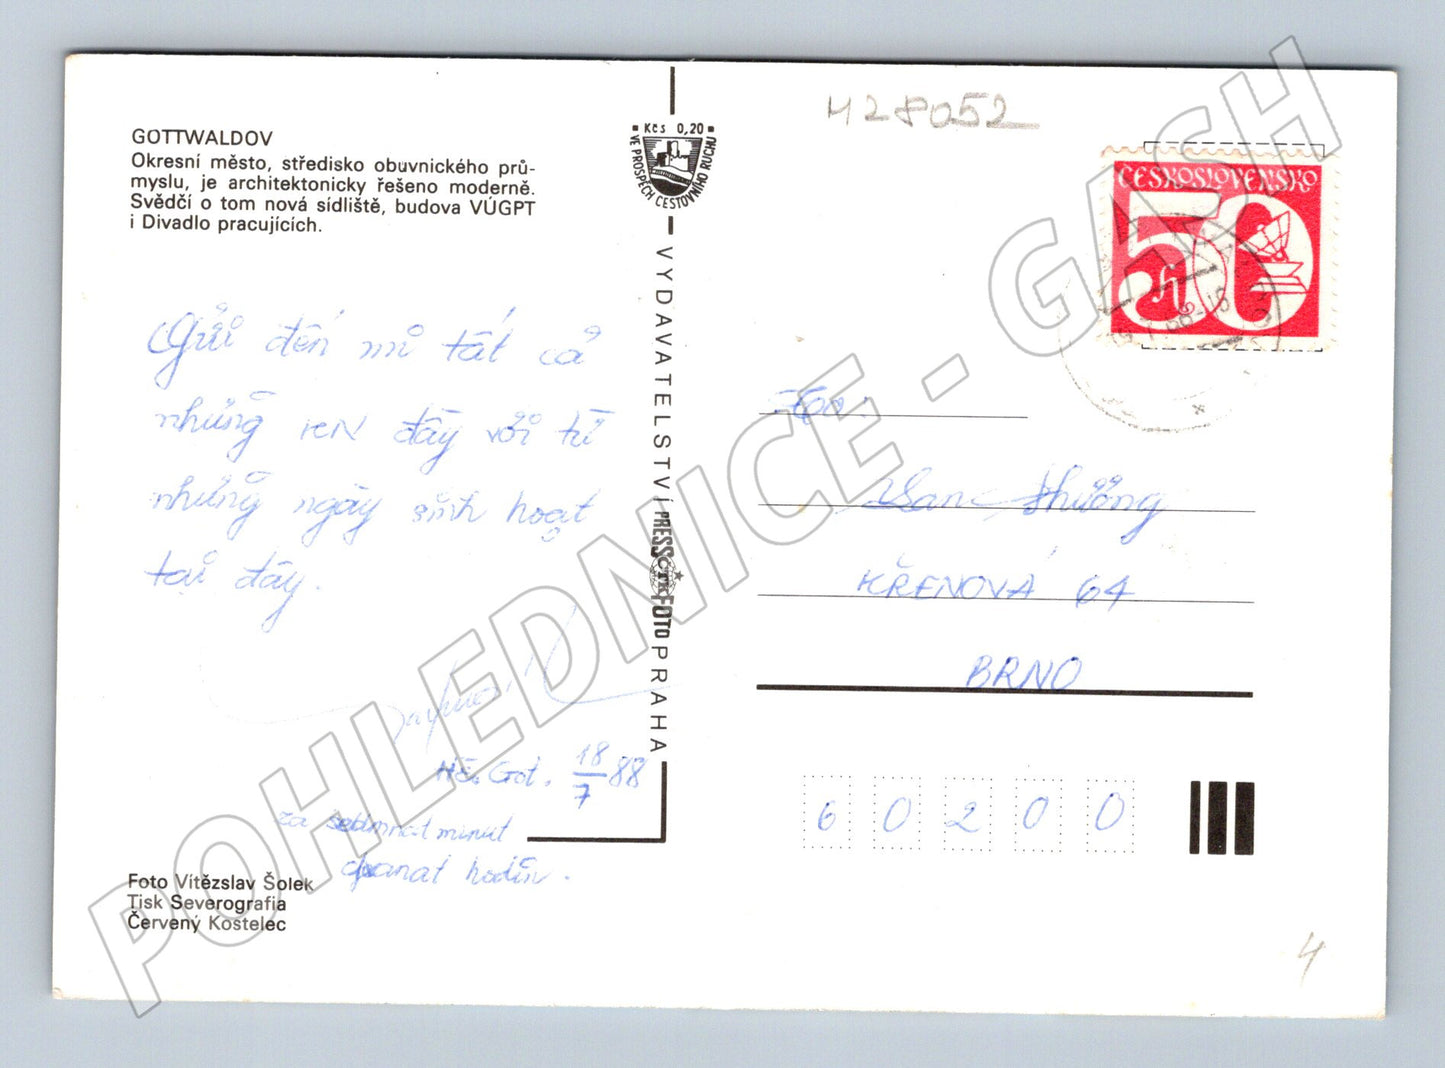 GOTTWALDOV
Okresní město, středisko obuvnického prů-
myslu, je architektonicky řešeno moderně.
Svědčí o tom nová sídliště, budova VÚGPT
i Divadlo pracujících.
Kčs 0,20
VE PROSPĚCH CESTOVNÍHO RUCHU
VYDAVATELSTVÍ PRESSFOTO PRAHA
ČTK
H28052
ČESKOSLOVENSKO
50
h
Gửi đến mi tất cả
những KN đây với từ
những ngày sinh hoạt
tại đây.
Got. 18/7 88
za sedmnact minut
hodin.
Foto Vítězslav Šolek
Tisk Severografia
Červený Kostelec
Van Thưởng
KŘENOVÁ 64
BRNO
60200
4
POHLEDNICE - GASH